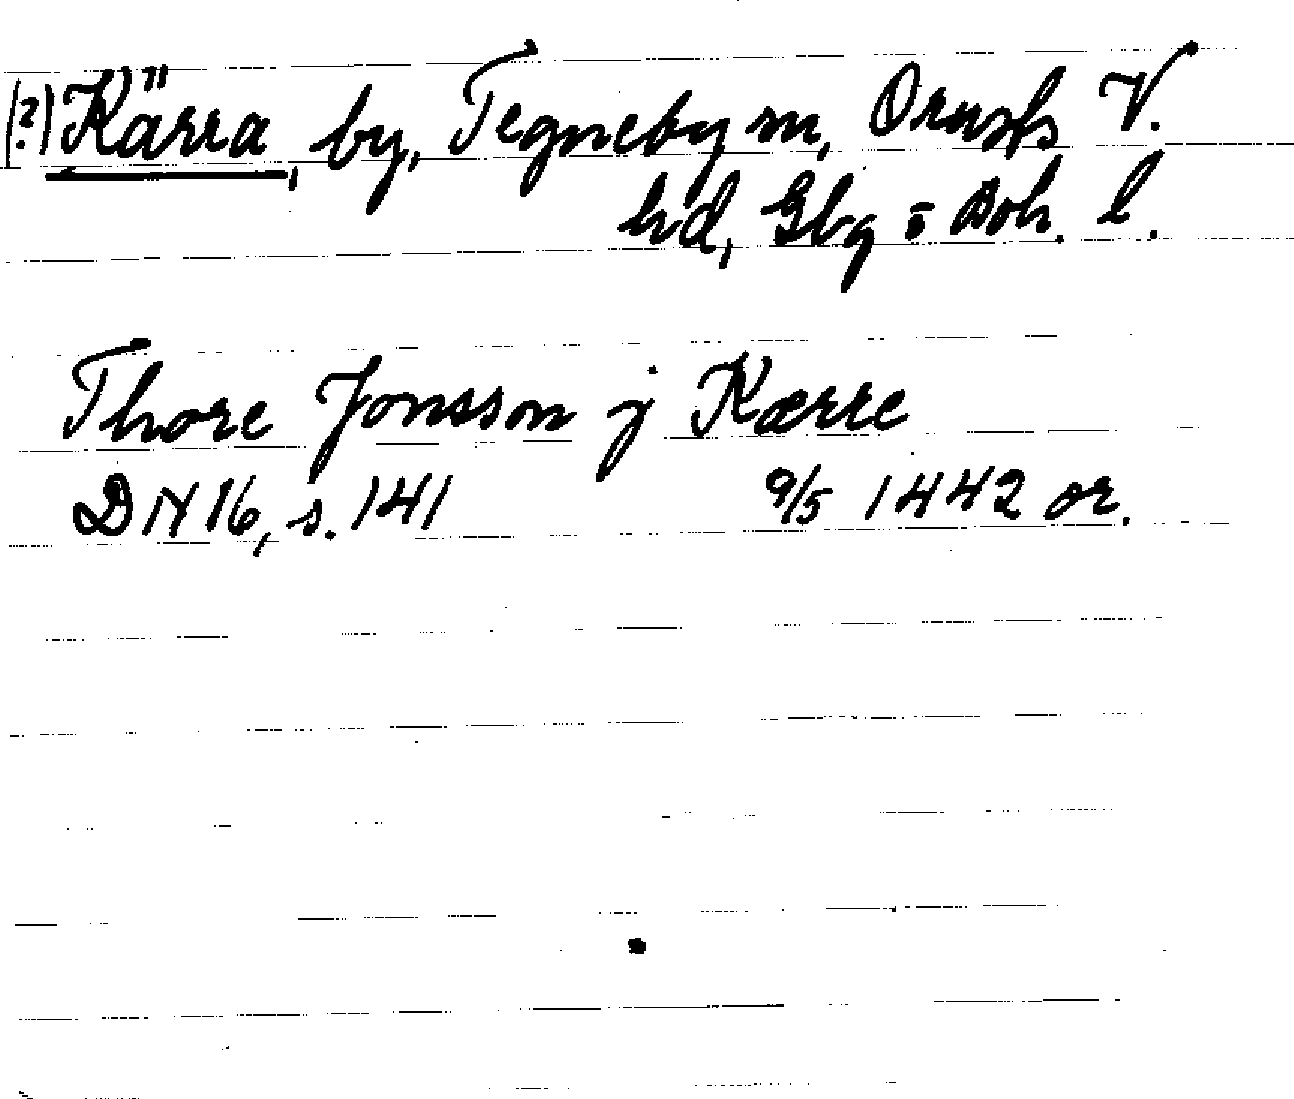 (?) Kärra, by, Tegneby sn, Orusts V.
hd, Gbg o Boh. l.
Thore Jonsson j Kærre
DN 16, s. 141 9/5 1442 or.